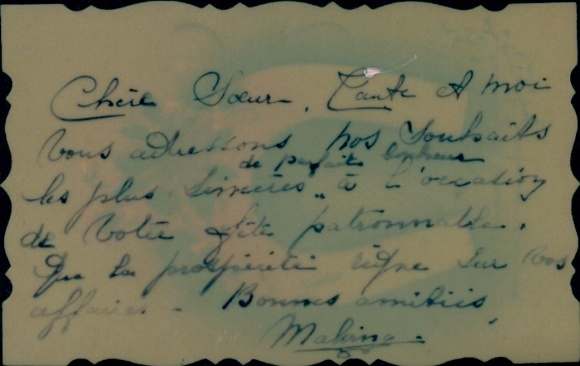 Chère Sœur, Tante et moi
vous adressons nos souhaits
de parfait bonheur
les plus sincères à l'occasion
de votre fête patronale.
Que la prospérité règne sur vos
affaires - Bonnes amitiés